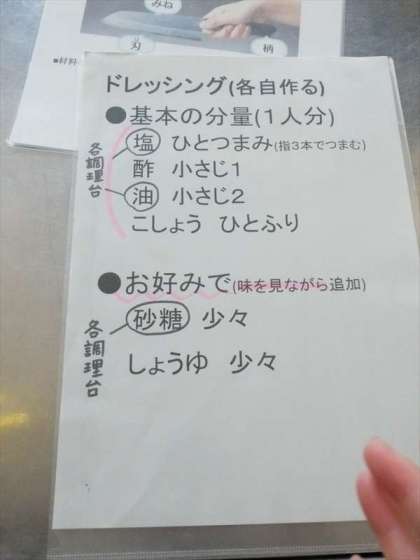 みね
刃
柄
■材料
ドレッシング(各自作る)
●基本の分量(1人分)
塩 ひとつまみ(指3本でつまむ)
酢 小さじ1
油 小さじ2
こしょう ひとふり
各調理台
●お好みで(味を見ながら追加)
砂糖 少々
しょうゆ 少々
各調理台